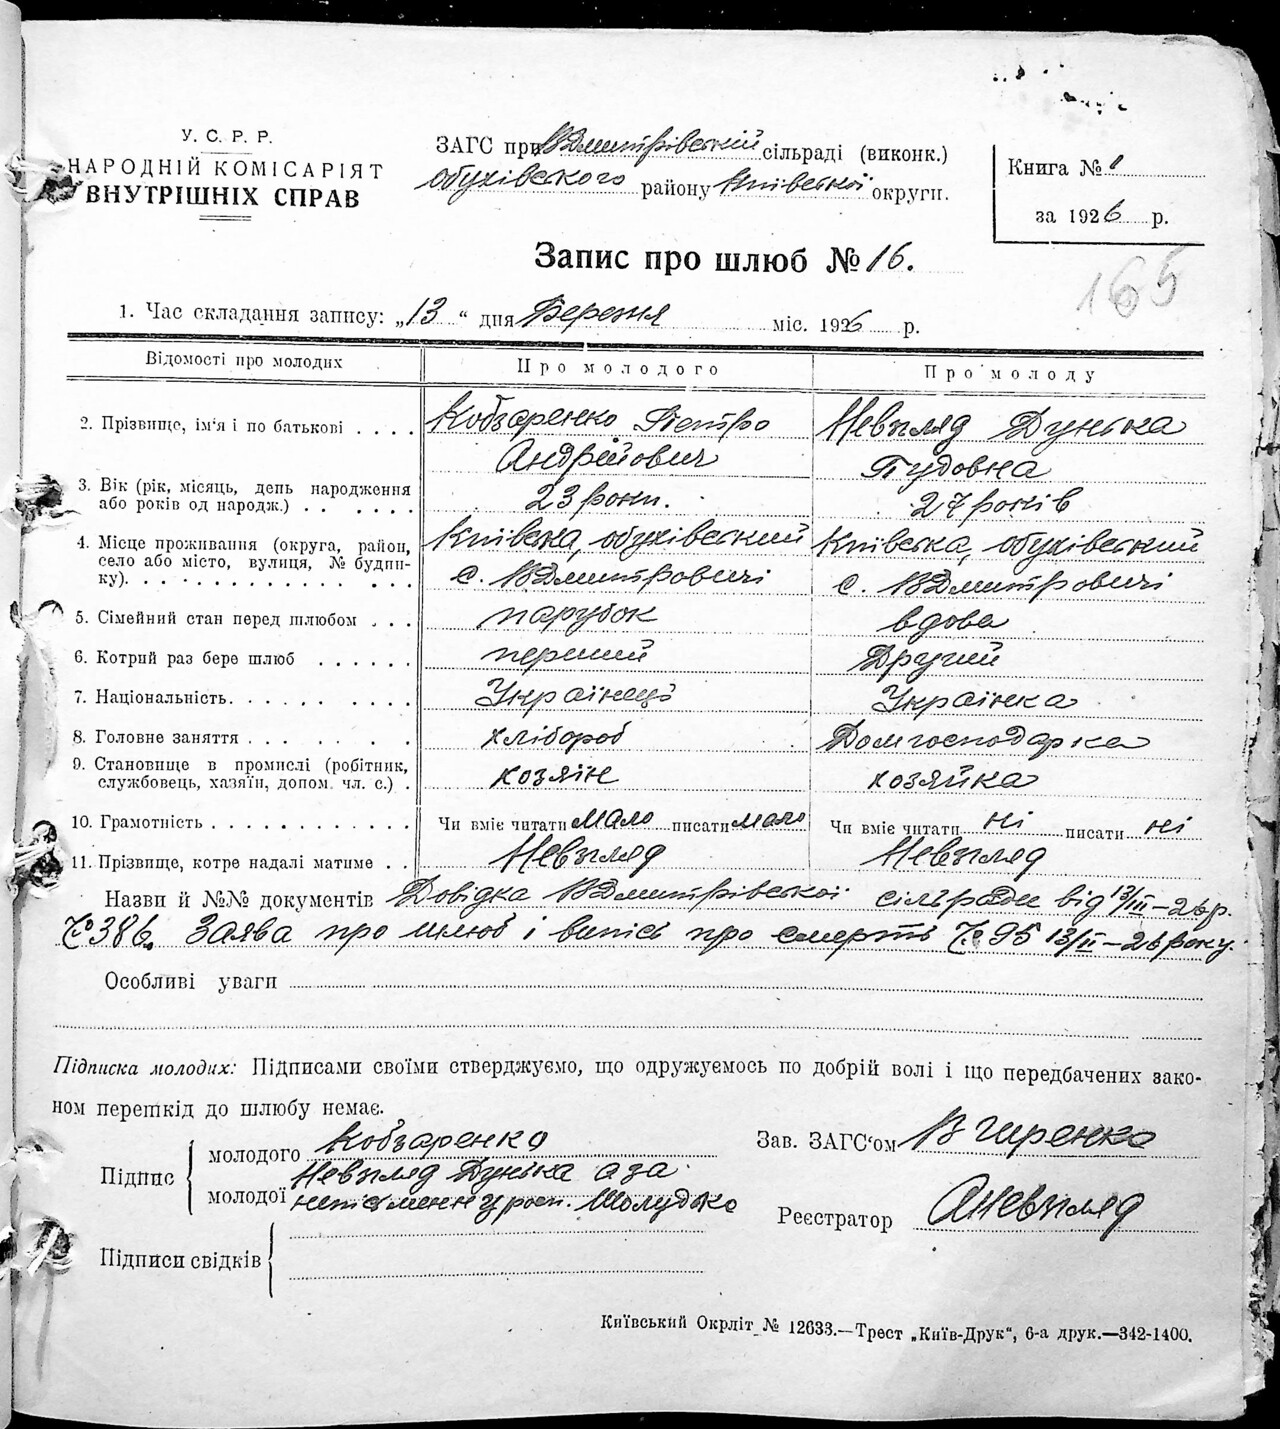 У. С. Р. Р.
НАРОДНІЙ КОМІСАРІЯТ
ВНУТРІШНІХ СПРАВ
ЗАГС при ВДмитрівській сільраді (виконк.)
обухівского району Київської округи.
Книга № 1
за 1926 р.
Запис про шлюб № 16.
165
1. Час складання запису: „13“ дня Березня міс. 1926 р.
Відомості про молодих Про молодого Про молоду
2. Прізвище, ім'я і по батькові . . . . Кобзаренко Петро Невзгляд Дунька
Андрійович Пудовна
3. Вік (рік, місяць, день народження
або років од народж.) . . . . . . 23 роки. 27 років
4. Місце проживання (округа, район, Київська, обухівський Київська, обухівський
село або місто, вулиця, № будин-
ку). с. ВДмитровичі с. ВДмитровичі
5. Сімейний стан перед шлюбом . . . парубок вдова
6. Котрий раз бере шлюб . . . . . . перший Другий
7. Національність. . . . . . . . . . Українець Українка
8. Головне заняття . . . . . . . хлібороб Домгосподарка
9. Становище в промислі (робітник,
службовець, хазяїн, допом. чл. с.) . хозяїн хозяйка
10. Грамотність . . . . . . . . . . . . Чи вміє читати мало писати мало Чи вміє читати ні писати ні
11. Прізвище, котре надалі матиме . . Невзгляд Невзгляд
Назви й №№ документів Довідка ВДмитрівської сільради від 13/III–26 р.
№ 386. Заява про шлюб і випісь про смерть № 95 13/II–26 року.
Особливі уваги
Підписка молодих: Підписами своїми стверджуємо, що одружуємось по добрій волі і що передбачених зако-
ном перешкід до шлюбу немає.
Підпис
молодого Кобзаренко
Невзгляд Дунька а за
молодої неписменну росп. Шолудько
Зав. ЗАГС'ом
Реєстратор АНевзгляд
Підписи свідків
Київський Окрліт № 12633.—Трест „Київ-Друк“, 6-а друк.—342-1400.